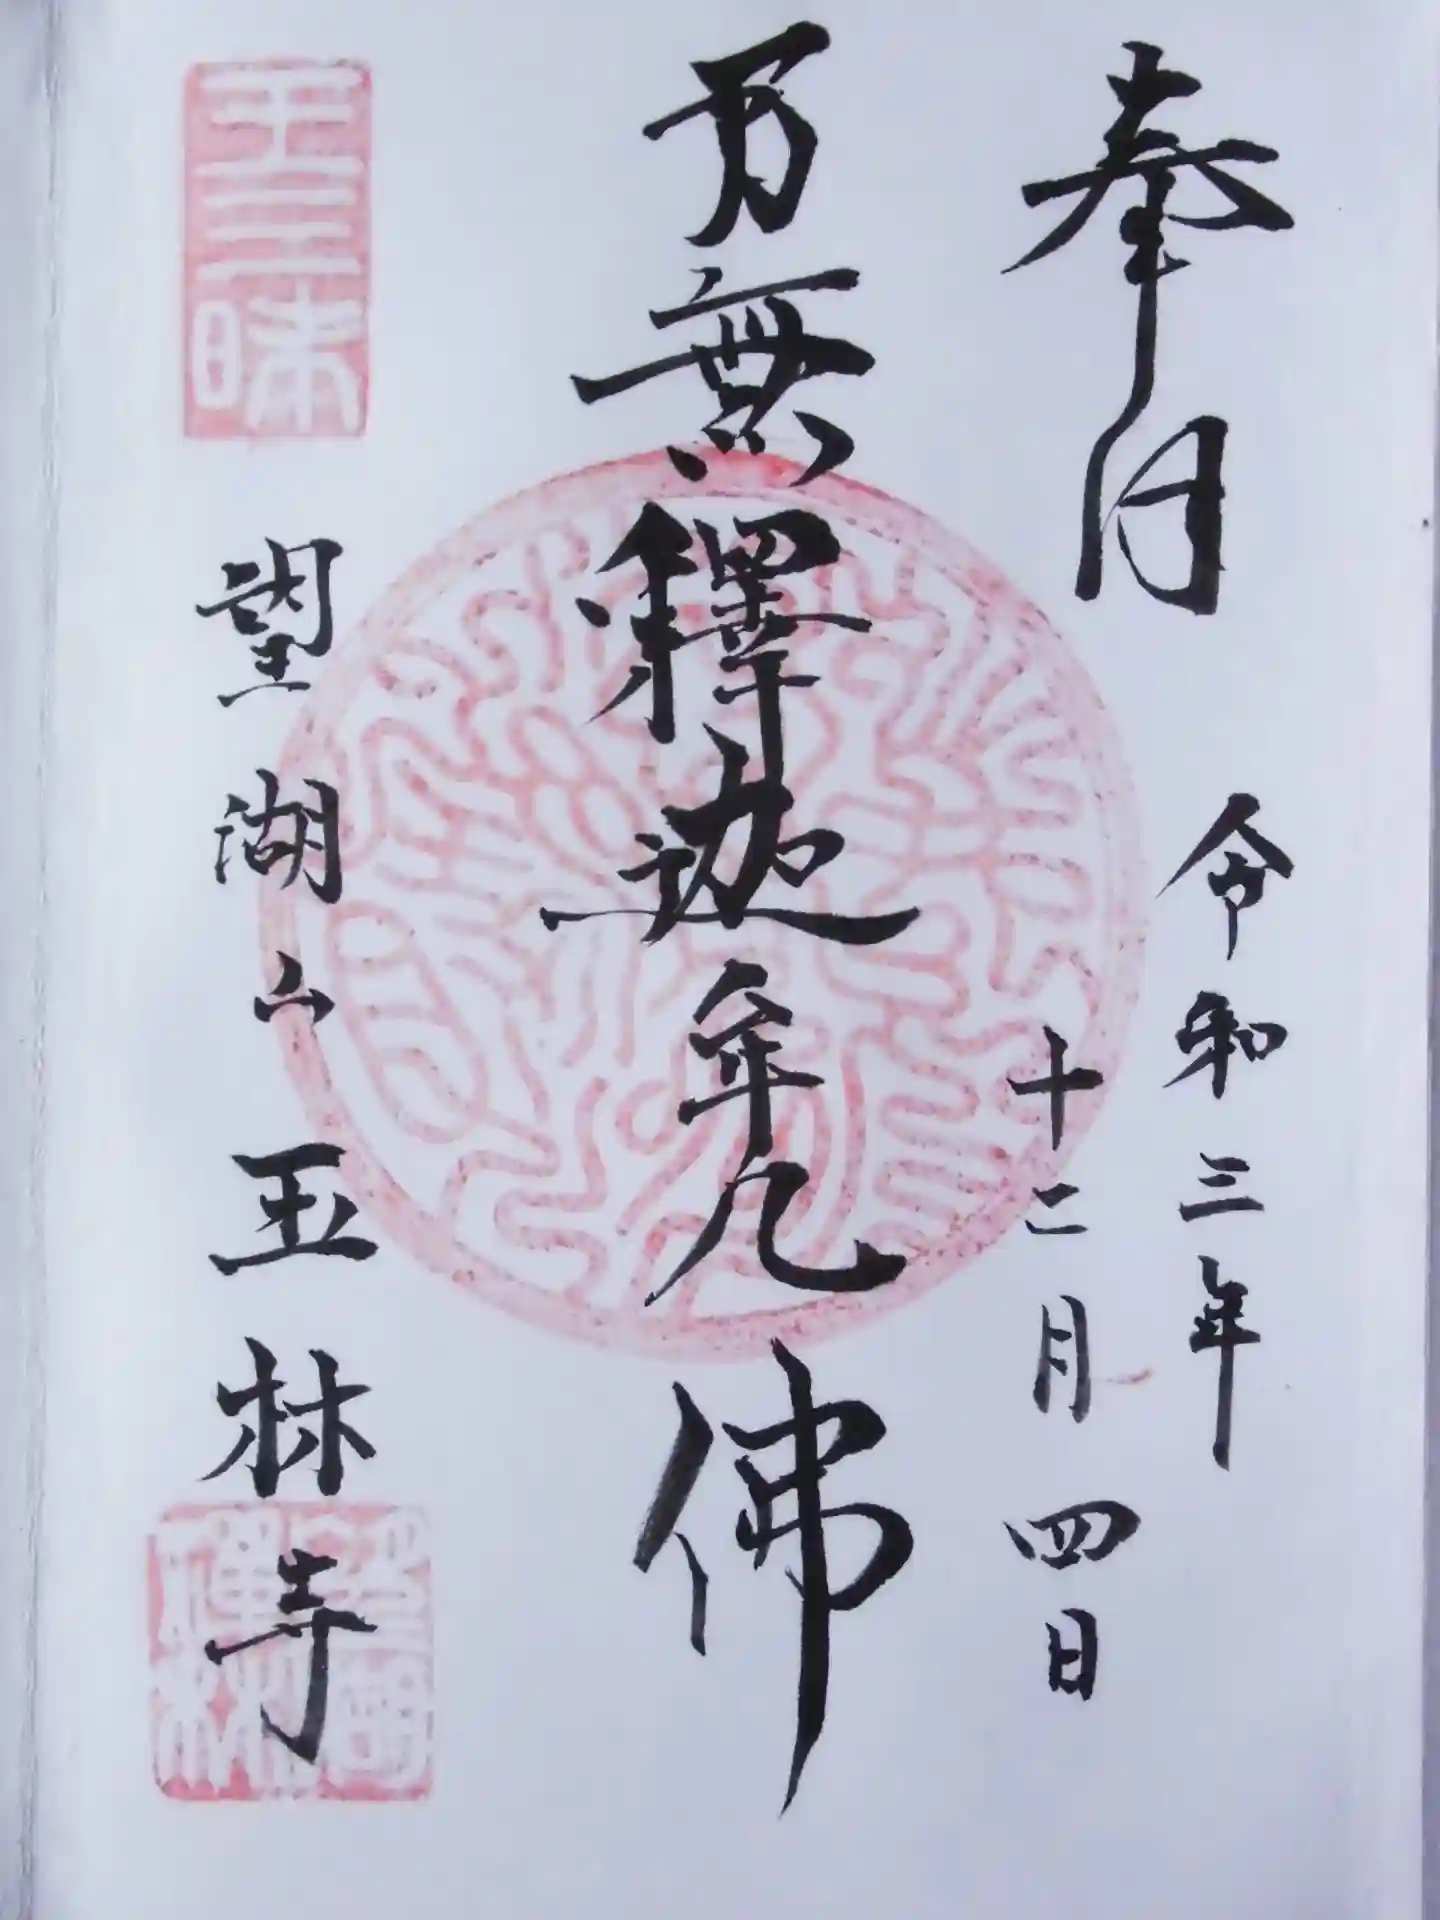 奉拝
令和三年
十二月四日
南無釋迦牟尼佛
王三昧
望湖山玉林寺